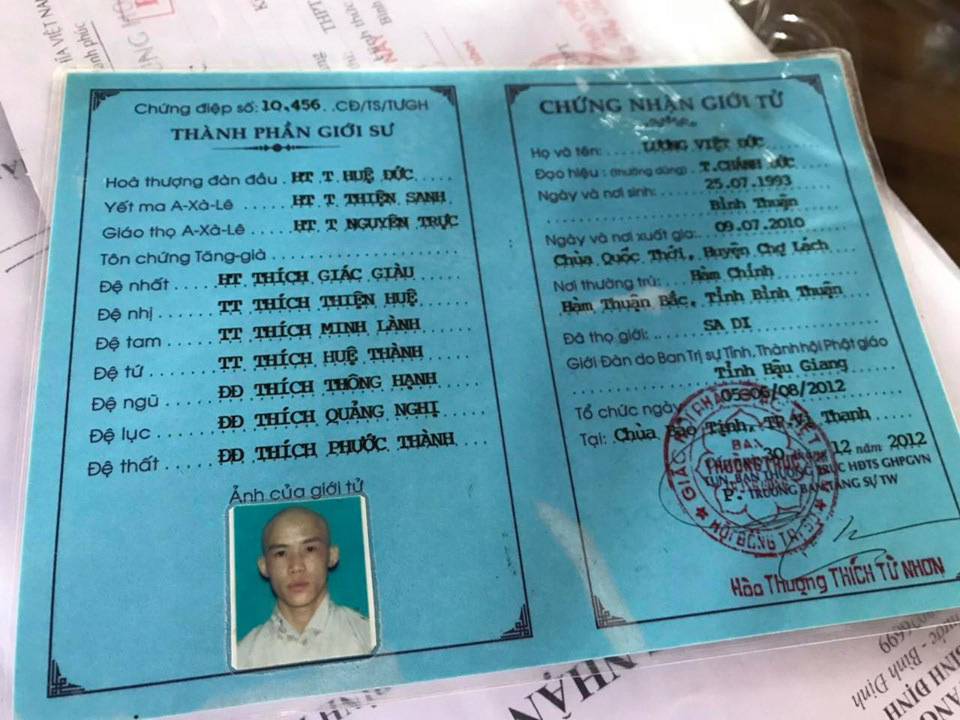 Chứng điệp số: 10.456. CĐ/TS/TƯGH
THÀNH PHẦN GIỚI SƯ
Hoà thượng đàn đầu. HT T HUỆ ĐỨC
Yết ma A-Xà-Lê ..... HT T THIỆN SANH
Giáo thọ A-Xà-Lê ..... HT T NGUYÊN TRỰC
Tôn chứng Tăng-già
Đệ nhất ..... HT THÍCH GIÁC GIÀU
Đệ nhị ..... TT THÍCH THIỆN HUỆ
Đệ tam ..... TT THÍCH MINH LÀNH
Đệ tứ ..... TT THÍCH HUỆ THÀNH
Đệ ngũ ..... ĐĐ THÍCH THÔNG HẠNH
Đệ lục ..... ĐĐ THÍCH QUẢNG NGHỊ
Đệ thất ..... ĐĐ THÍCH PHƯỚC THÀNH
Ảnh của giới tử
CHỨNG NHẬN GIỚI TỬ
Họ và tên: LƯƠNG VIỆT ĐỨC
Đạo hiệu: (thường dùng) T.CHÁNH ĐỨC
Ngày và nơi sinh: 25.07.1993
Bình Thuận
Ngày và nơi xuất gia: 09.07.2010
Chùa Quốc Thới, Huyện Chợ Lách
Nơi thường trú: Hàm Chính
Hàm Thuận Bắc, Tỉnh Bình Thuận
Đã thọ giới: SA DI
Giới Đàn do Ban Trị sự Tỉnh, Thành hội Phật giáo
Tỉnh Hậu Giang
Tổ chức ngày 05-06/08/2012
Tại: Chùa Bảo Tịnh, TP.Vị Thanh
30 12 năm 2012
TUN. BAN THƯỜNG TRỰC HĐTS GHPGVN
P. TRƯỞNG BAN TĂNG SỰ TW
BAN
THƯỜNG TRỰC
Hòa Thượng THÍCH TỪ NHƠN
NHẬN